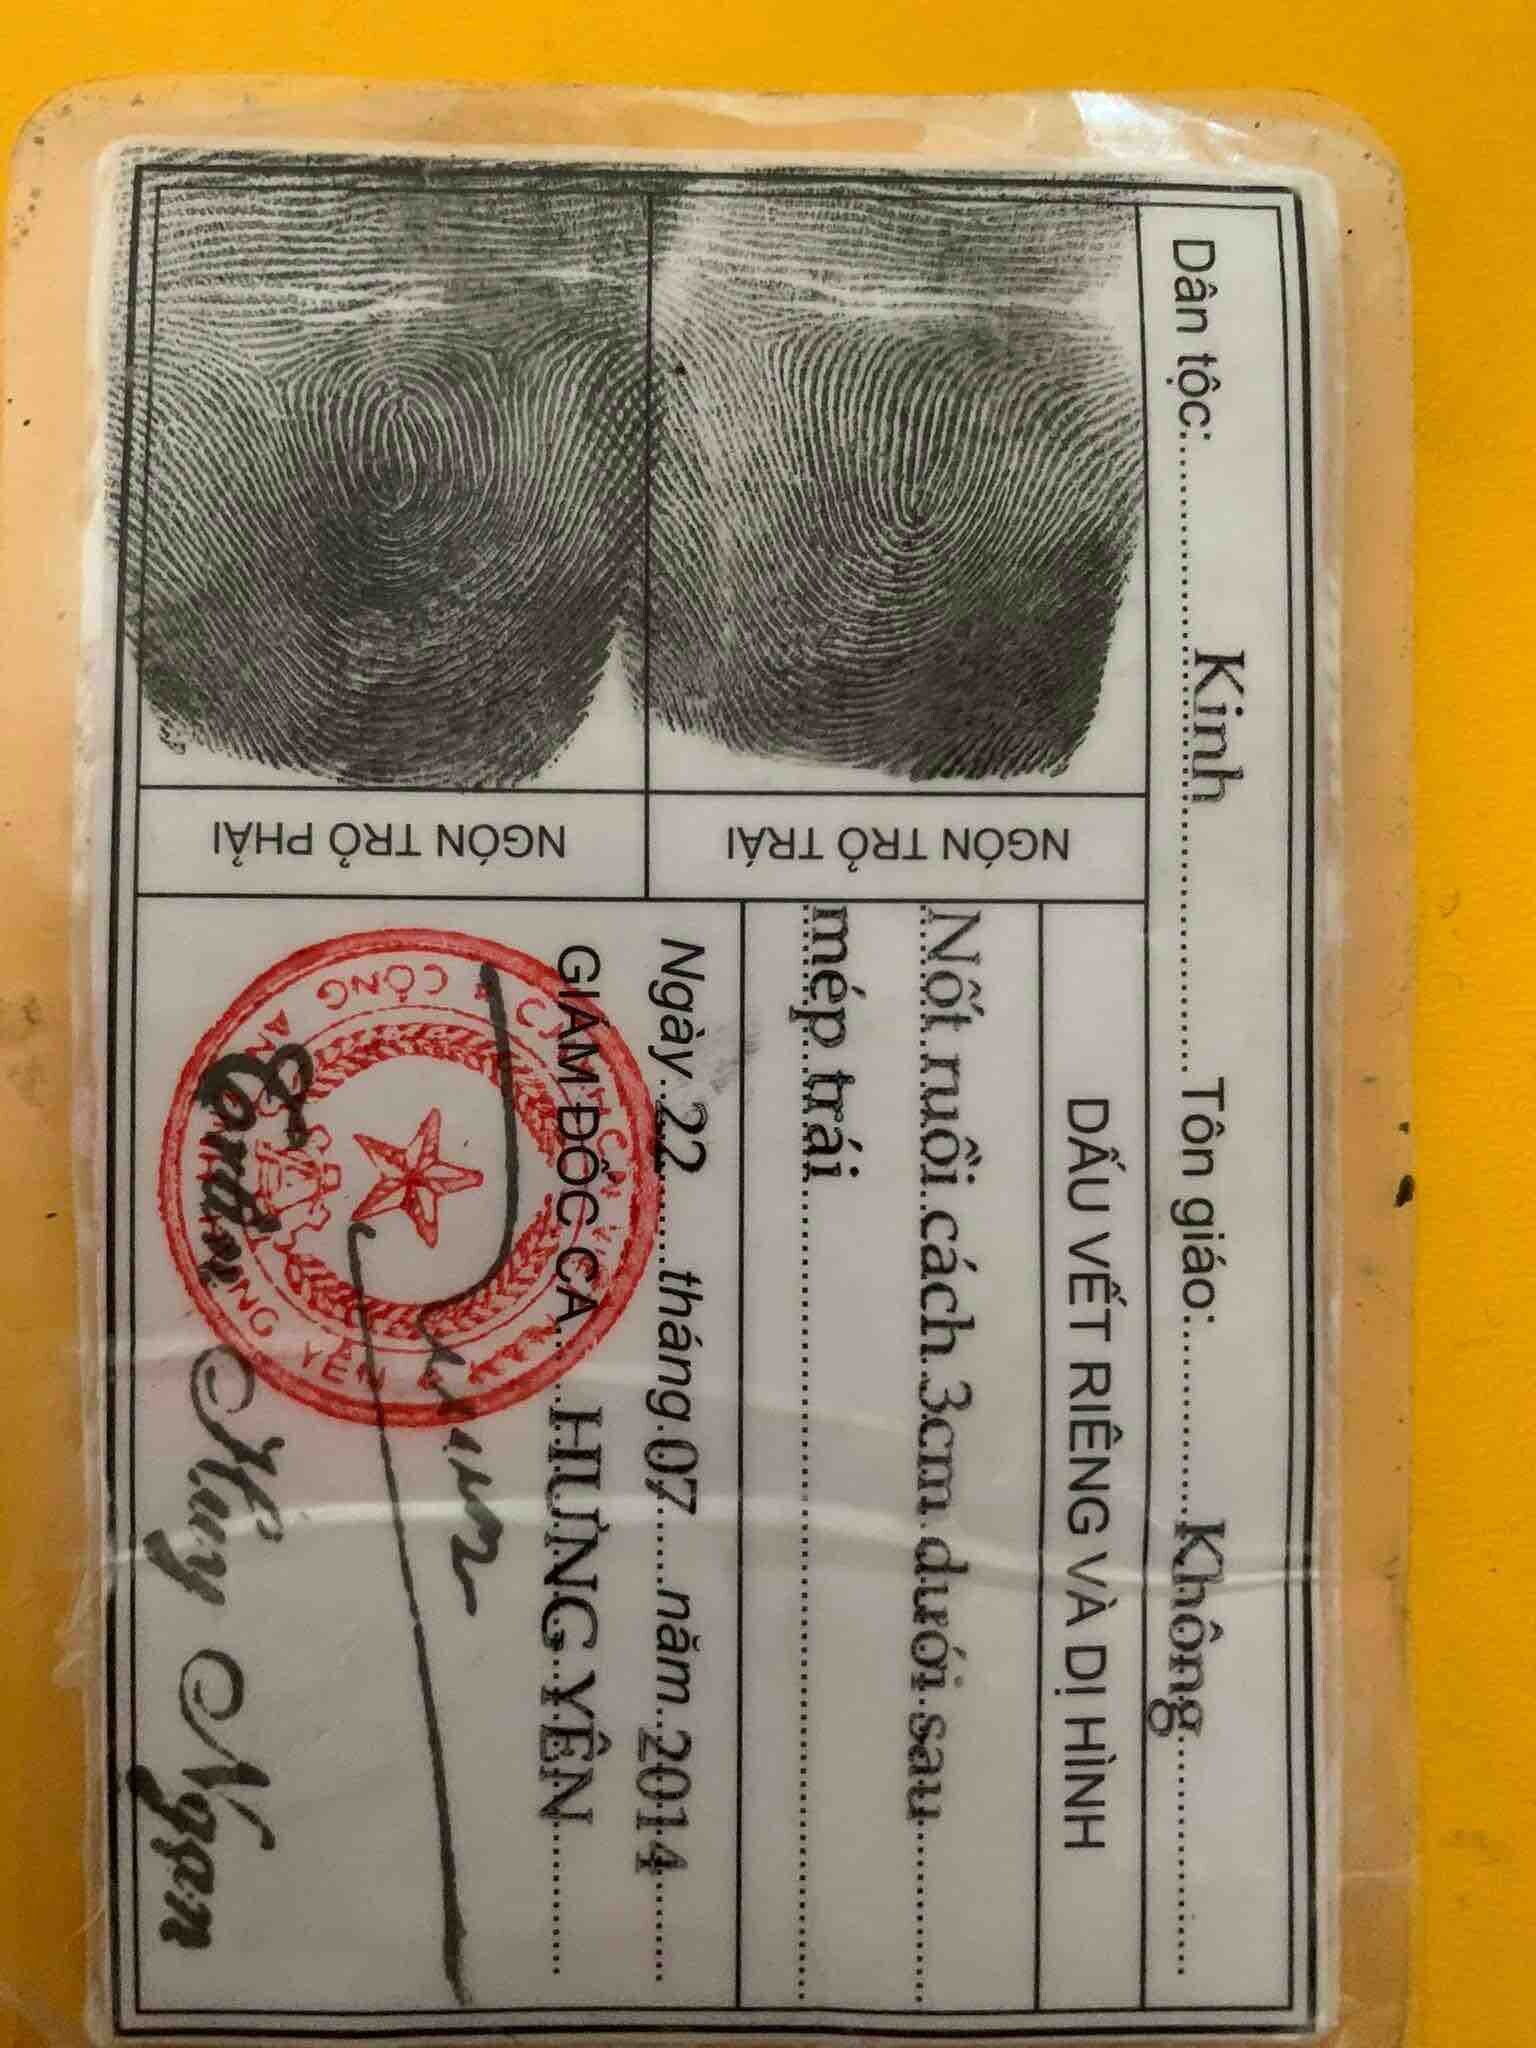 Dân tộc: Kinh Tôn giáo: Không
NGÓN TRỎ TRÁI
NGÓN TRỎ PHẢI
DẤU VẾT RIÊNG VÀ DỊ HÌNH
Nốt ruồi cách 3cm dưới sau
mép trái
Ngày 22 tháng 07 năm 2014
GIÁM ĐỐC CA HƯNG YÊN
CÔNG AN T. HƯNG YÊN
Huy Ngạn